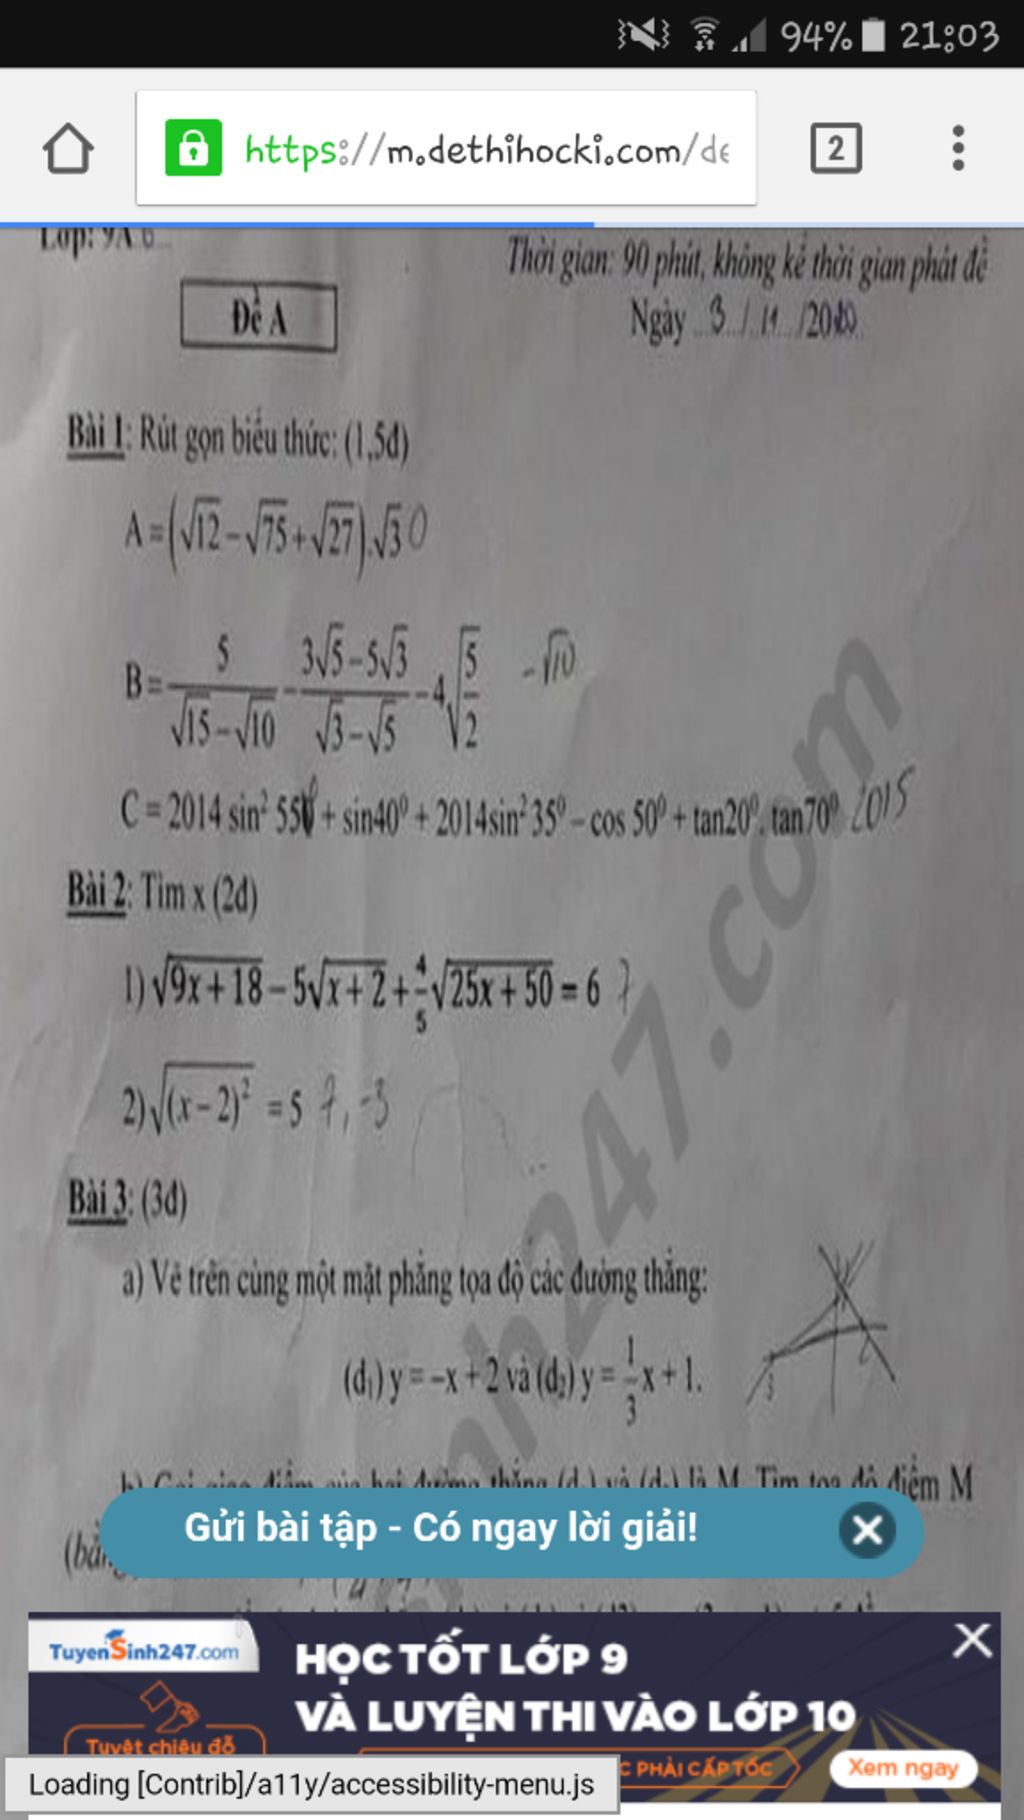 94% 21:03
https://m.dethihocki.com/de
2
Lớp: 9A 6
Thời gian: 90 phút, không kể thời gian phát đề
Đề A
Ngày 3 / 11 /2020
Bài 1: Rút gọn biểu thức: (1,5đ)
A = (√12 - √75 + √27).√3 0
B = 5/(√15 - √10) - (3√5 - 5√3)/(√3 - √5) - 4√(5/2) -√10
C = 2014 sin² 55⁰ + sin40⁰ + 2014sin² 35⁰ - cos 50⁰ + tan20⁰. tan70⁰ 2015
Bài 2: Tìm x (2đ)
1) √(9x + 18) - 5√(x + 2) + 4/5 √(25x + 50) = 6 7
2) √((x - 2)²) = 5 7, -3
Bài 3: (3đ)
a) Vẽ trên cùng một mặt phẳng tọa độ các đường thẳng:
(d₁) y = -x + 2 và (d₂) y = 1/3 x + 1.
b) Gọi giao điểm của hai đường thẳng (d₁) và (d₂) là M. Tìm tọa độ điểm M
Gửi bài tập - Có ngay lời giải!
TuyenSinh247.com
HỌC TỐT LỚP 9
VÀ LUYỆN THI VÀO LỚP 10
Tuyệt chiêu đỗ
PHẢI CẤP TỐC
Xem ngay
Loading [Contrib]/a11y/accessibility-menu.js
nh247.com